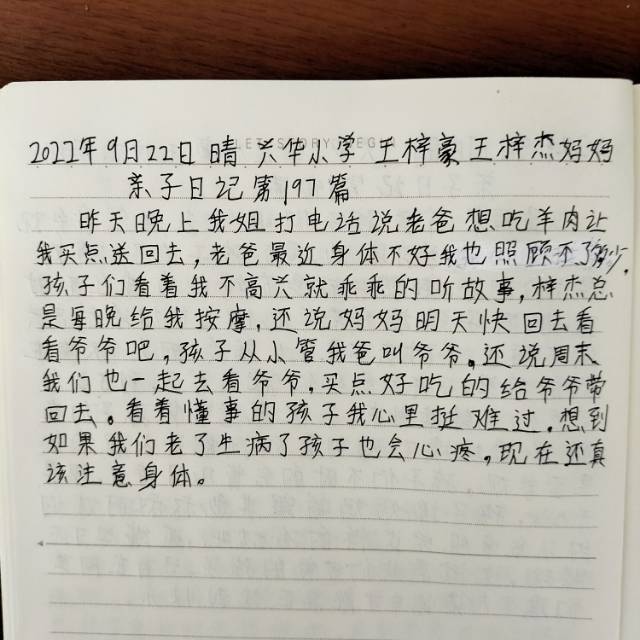 2022年9月22日 晴 兴华小学 王梓豪 王梓杰妈妈
亲子日记第197篇
昨天晚上我姐打电话说老爸想吃羊肉让
我买点送回去,老爸最近身体不好我也照顾不了多少,
孩子们看着我不高兴就乖乖的听故事,梓杰总
是每晚给我按摩,还说妈妈明天快回去看
看爷爷吧,孩子从小管我爸叫爷爷。还说周末
我们也一起去看爷爷,买点好吃的给爷爷带
回去。看着懂事的孩子我心里挺难过,想到
如果我们老了生病了孩子也会心疼,现在还真
该注意身体。